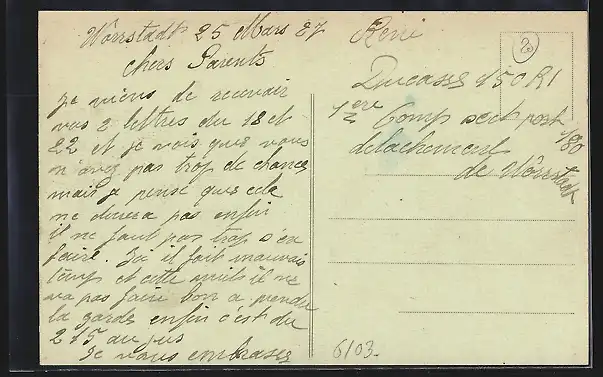 Wörrstadt 25 Mars 27
chers Parents
je viens de recevoir
vos 2 lettres du 18 et
22 et je vois que vous
n'avez pas trop de chances
mais je pense que cela
ne durera pas enfin
il ne faut pas trop s'en
faire. Ici il fait mauvais
temps et cette nuit il ne
va pas faire bon a prendre
la garde enfin c'est du
215 au jus
Je vous embrasse
René
Ducasse 150 RI
1ère Comp sect post
190
détachement
de Wörrstadt
2
6103